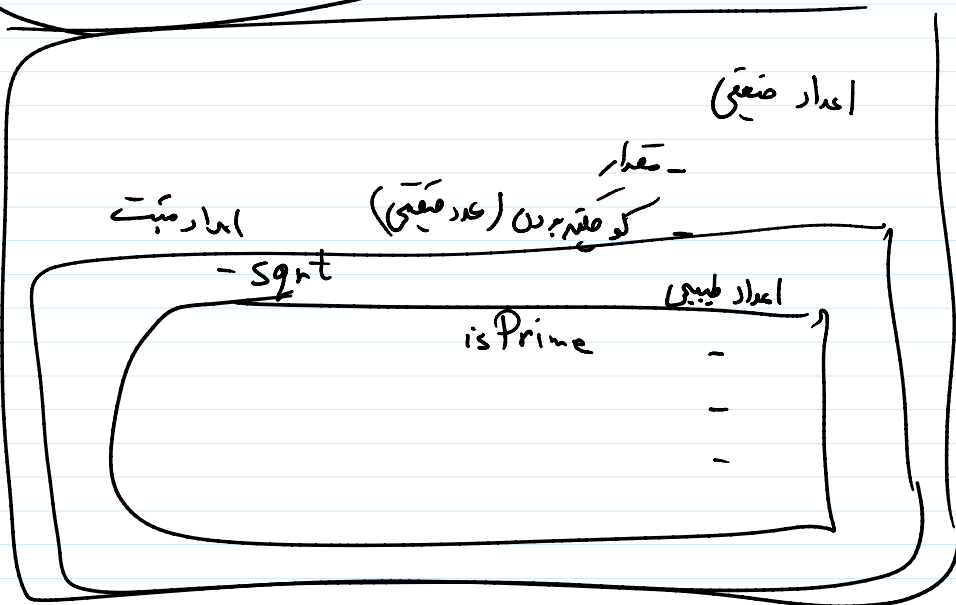 اعداد حقیقی
- مقدار
- کوچکتر بودن (عدد حقیقی)
اعداد مثبت
- sqrt
اعداد طبیعی
isPrime
-
-
-